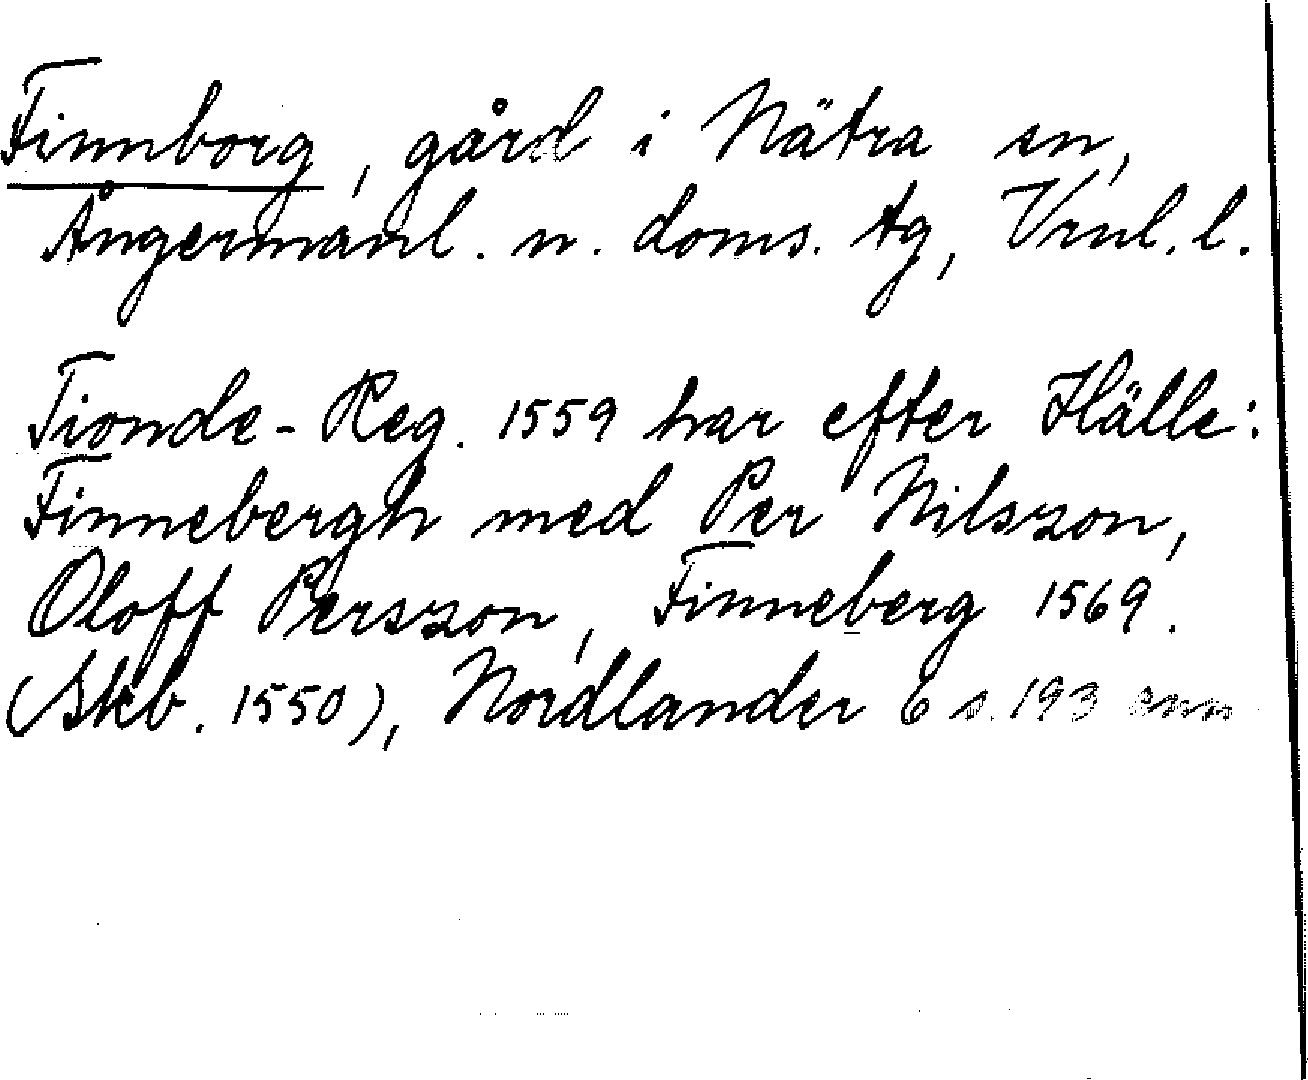 Finnborg, gård i Nätra sn,
Ångermanl. n. doms. tg, Vrnl. l.
Tionde-Reg. 1559 har efter Hälle:
Finnebergh med Per Nilsszon,
Oloff Perszon, Finneberg 1569.
(Skb. 1550), Nordlander 6 s. 193 anm